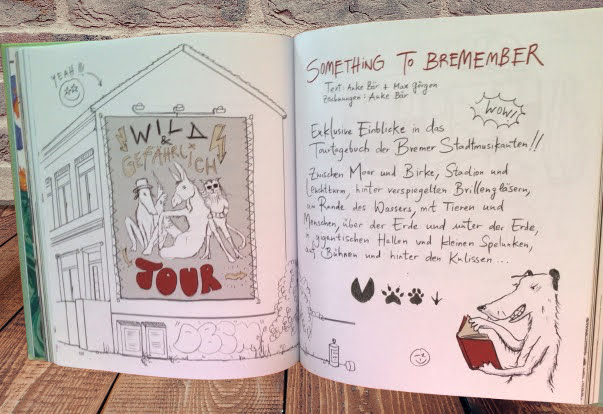 YEAH!!
WILD
&
GEFÄHRLICH
TOUR
SOMETHING TO BREMEMBER
Text: Anke Bär + Max Gürgen
Zeichnungen: Anke Bär
WOW!
Exklusive Einblicke in das
Tourtagebuch der Bremer Stadtmusikanten!!
Zwischen Moor und Birke, Stadion und
Leuchtturm, hinter verspiegelten Brillengläsern,
am Rande des Wassers, mit Tieren und
Menschen, über der Erde und unter der Erde,
in gigantischen Hallen und kleinen Spelunken,
auf Bühnen und hinter den Kulissen ...